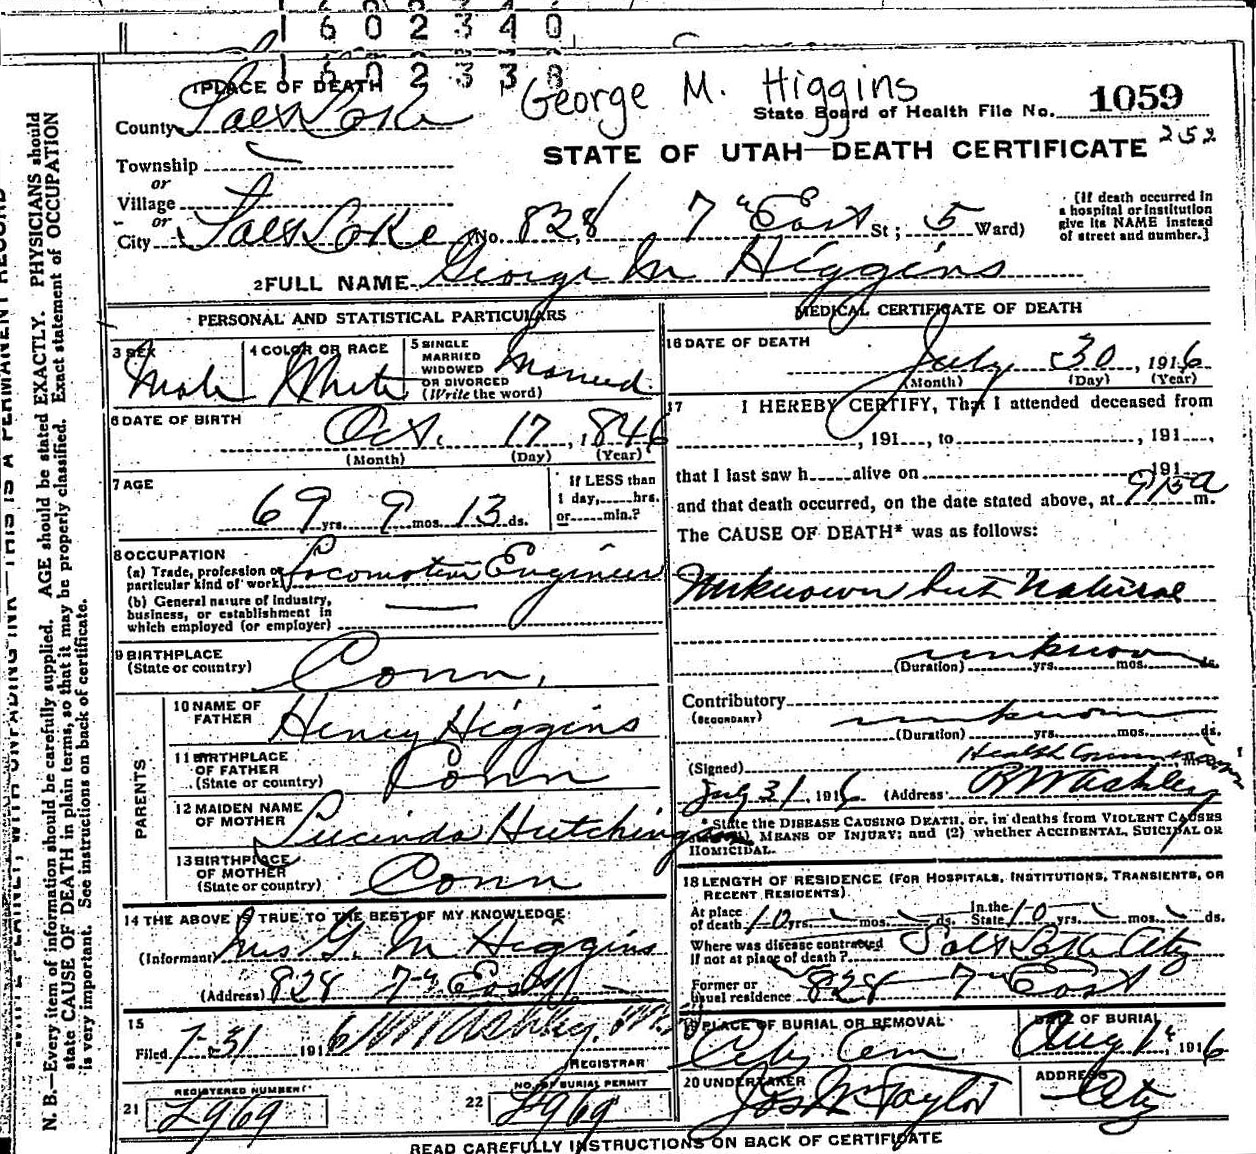 1 6 0 2 3 4 0
1 6 0 2 3 3 8
1 PLACE OF DEATH
George M. Higgins
County Salt Lake
State Board of Health File No. 1059
252
STATE OF UTAH—DEATH CERTIFICATE
Township
or
Village
or
City Salt Lake (No. 828 7th East St; 5 Ward)
(If death occurred in a hospital or institution give its NAME instead of street and number.]
2 FULL NAME George M Higgins
PERSONAL AND STATISTICAL PARTICULARS
3 SEX Male
4 COLOR OR RACE White
5 SINGLE MARRIED WIDOWED OR DIVORCED (Write the word) Married
6 DATE OF BIRTH Oct. 17, 1846
(Month) (Day) (Year)
7 AGE 69 yrs. 9 mos. 13 ds.
If LESS than 1 day, hrs. or min.?
8 OCCUPATION
(a) Trade, profession or particular kind of work Locomotive Engineer
(b) General nature of industry, business, or establishment in which employed (or employer)
9 BIRTHPLACE (State or country) Conn.
PARENTS
10 NAME OF FATHER Henry Higgins
11 BIRTHPLACE OF FATHER (State or country) Conn
12 MAIDEN NAME OF MOTHER Lucinda Hutchings
13 BIRTHPLACE OF MOTHER (State or country) Conn
14 THE ABOVE IS TRUE TO THE BEST OF MY KNOWLEDGE
(Informant) Mrs G. M Higgins
(Address) 828 7th East
15
Filed 7-31 1916 M.D.
REGISTRAR
21 REGISTERED NUMBER 2969
22 NO. OF BURIAL PERMIT 2969
MEDICAL CERTIFICATE OF DEATH
16 DATE OF DEATH July 30, 1916
(Month) (Day) (Year)
17 I HEREBY CERTIFY, That I attended deceased from
, 191 , to , 191 ,
that I last saw h alive on 191
and that death occurred, on the date stated above, at 915 a m.
The CAUSE OF DEATH* was as follows:
Unknown but Natural
unknown
(Duration) yrs. mos. ds.
Contributory (SECONDARY)
unknown
(Duration) yrs. mos. ds.
(Signed) Health Commissioner
July 31, 1916 (Address
* State the DISEASE CAUSING DEATH, or, in deaths from VIOLENT CAUSES
MEANS OF INJURY; and (2) whether ACCIDENTAL, SUICIDAL OR
HOMICIDAL.
18 LENGTH OF RESIDENCE (FOR HOSPITALS, INSTITUTIONS, TRANSIENTS, OR RECENT RESIDENTS)
At place of death 10 yrs. mos. ds. In the State 10 yrs. mos. ds.
Where was disease contracted if not at place of death? Salt Lake City
Former or usual residence 828 7th East
19 PLACE OF BURIAL OR REMOVAL City Cem
DATE OF BURIAL Aug 1st, 1916
20 UNDERTAKER Jos W Taylor
ADDRESS City
READ CAREFULLY INSTRUCTIONS ON BACK OF CERTIFICATE
N. B.—Every item of information should be carefully supplied. AGE should be stated EXACTLY. PHYSICIANS should
state CAUSE OF DEATH in plain terms, so that it may be properly classified. Exact statement of OCCUPATION
is very important. See instructions on back of certificate.